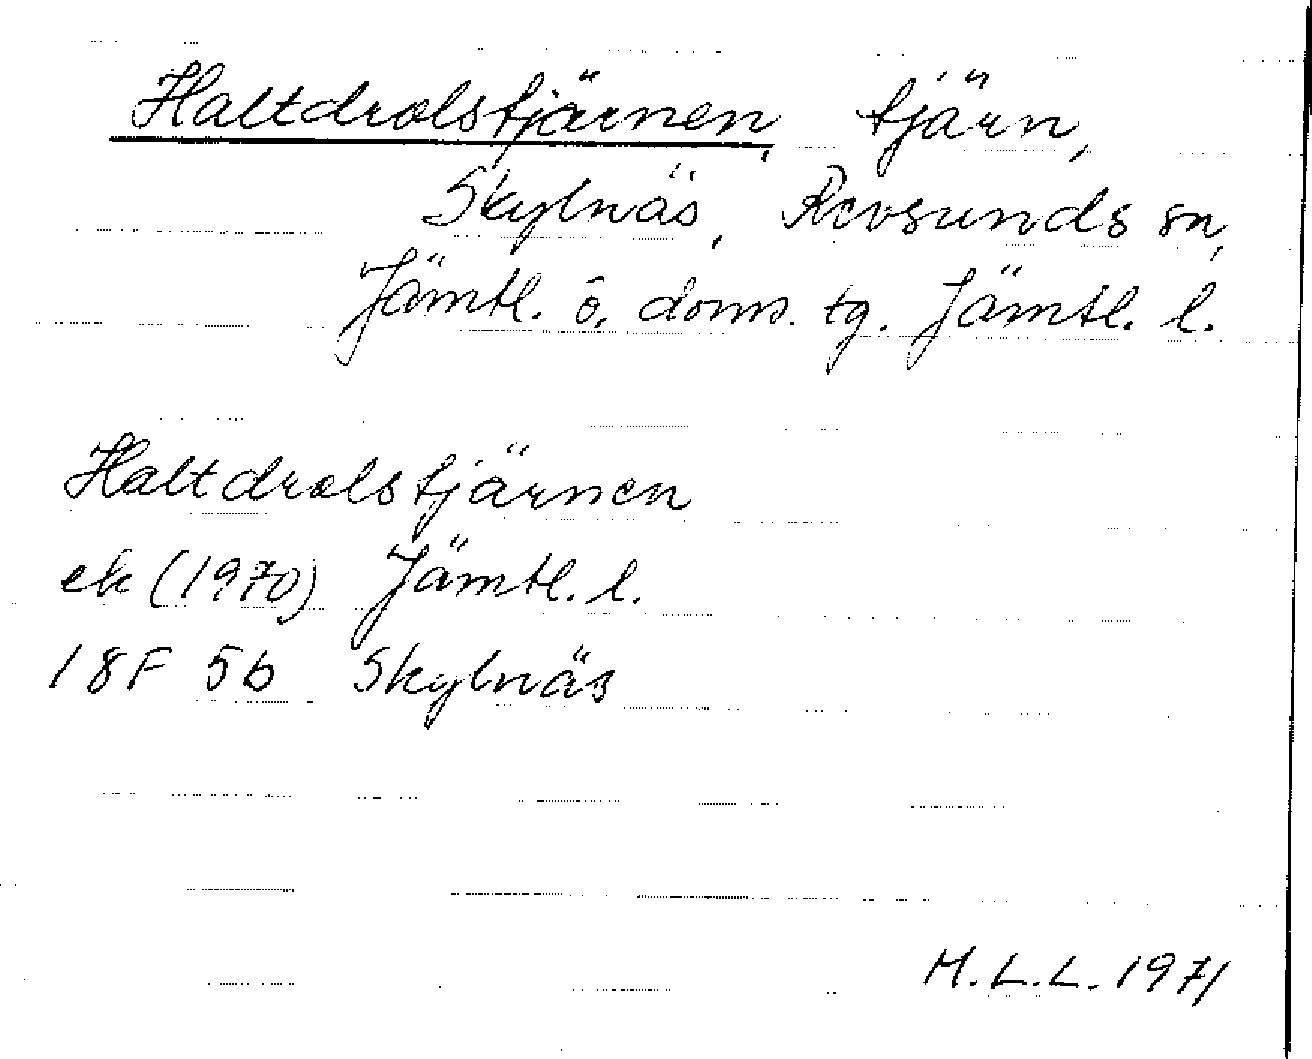 Haltdralstjärnen, tjärn,
Skylnäs, Revsunds sn,
Jämtl. ö. doms. tg. Jämtl. l.
Haltdralstjärnen
ek (1970) Jämtl. l.
18F 5b Skylnäs
M.L.L. 1971